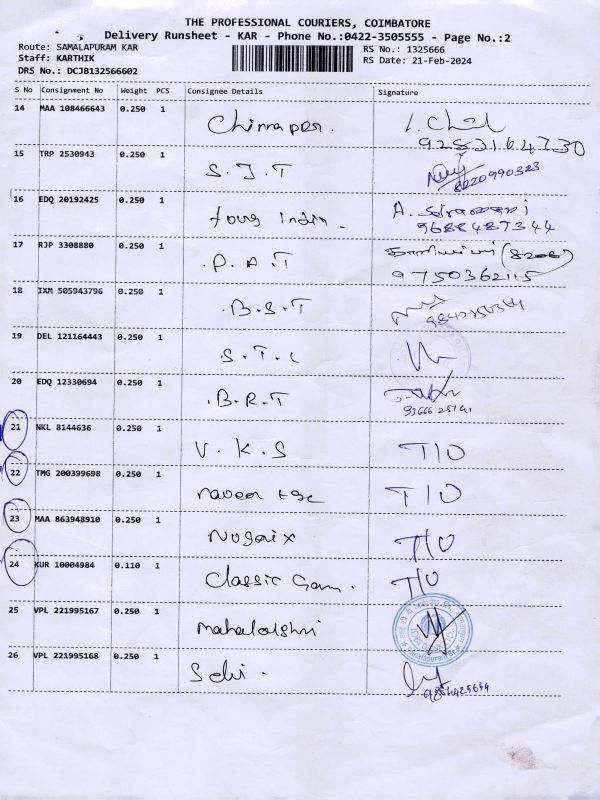 THE PROFESSIONAL COURIERS, COIMBATORE
Delivery Runsheet - KAR - Phone No.:0422-3505555 - Page No.:2
Route: SAMALAPURAM KAR RS No.: 1325666
Staff: KARTHIK RS Date: 21-Feb-2024
DRS No.: DCJB132566602
S No Consignment No Weight PCS Consignee Details Signature
14 MAA 108466643 0.250 1
15 TRP 2530943 0.250 1 S. J. T
8220990323
16 EDQ 20192425 0.250 1 A.
9688487344
17 RJP 3308880 0.250 1 P. A. T
9750362115
18 IXM 505943796 0.250 1 B. S. T
19 DEL 121164443 0.250 1 S. T. C
20 EDQ 12330694 0.250 1 B. R. T
21 NKL 8144636 0.250 1 V. K. S T/O
22 TMG 200399698 0.250 1 T/O
23 MAA 863948910 0.250 1 T/O
24 KUR 10004984 0.110 1 Classic T/O
25 VPL 221995167 0.250 1 mahalakshmi
26 VPL 221995168 0.250 1